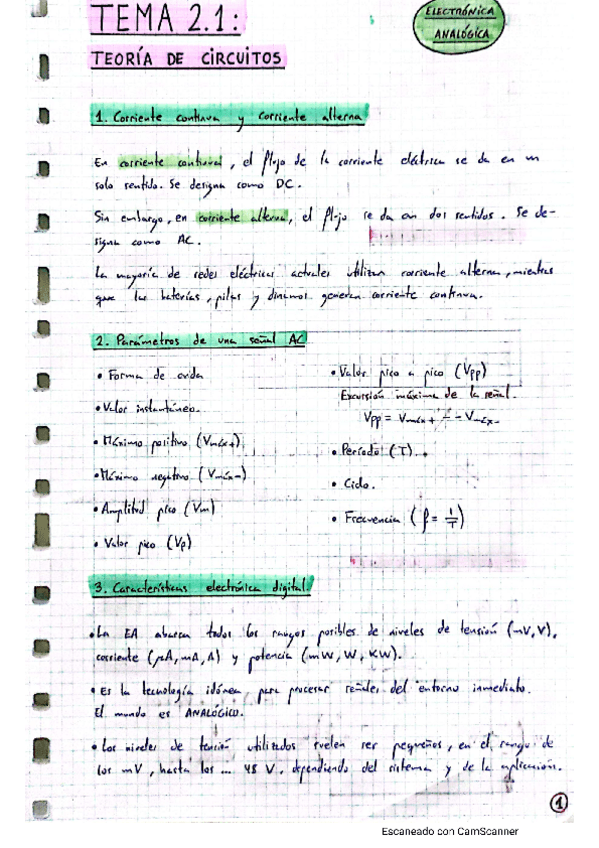 TEMA 2.1:
ELECTRÓNICA
ANALÓGICA
TEORÍA DE CIRCUITOS
1. Corriente continua y corriente alterna
En corriente continua, el flujo de la corriente eléctrica se da en un
solo sentido. Se designa como DC.
Sin embargo, en corriente alterna, el flujo se da en dos sentidos. Se de-
signa como AC.
La mayoría de redes eléctricas actuales utilizan corriente alterna, mientras
que las baterías, pilas y dinamos generan corriente continua.
2. Parámetros de una señal AC
• Forma de onda
• Valor instantáneo.
• Máximo positivo (Vmáx+)
• Máximo negativo (Vmáx-)
• Amplitud pico (Vm)
• Valor pico (Vp)
• Valor pico a pico (Vpp)
Excursión máxima de la señal.
Vpp = Vmáx+ - Vmáx-
• Período (T).
• Ciclo.
• Frecuencia (f = 1/T)
3. Características electrónica digital
• La EA abarca todos los rangos posibles de niveles de tensión (mV, V),
corriente (μA, mA, A) y potencia (mW, W, KW).
• Es la tecnología idónea para procesar señales del entorno inmediato.
El mundo es ANALÓGICO.
• Los niveles de tensión utilizados suelen ser pequeños, en el rango de
los mV, hasta los ... 48 V, dependiendo del sistema y de la aplicación.
1
Escaneado con CamScanner